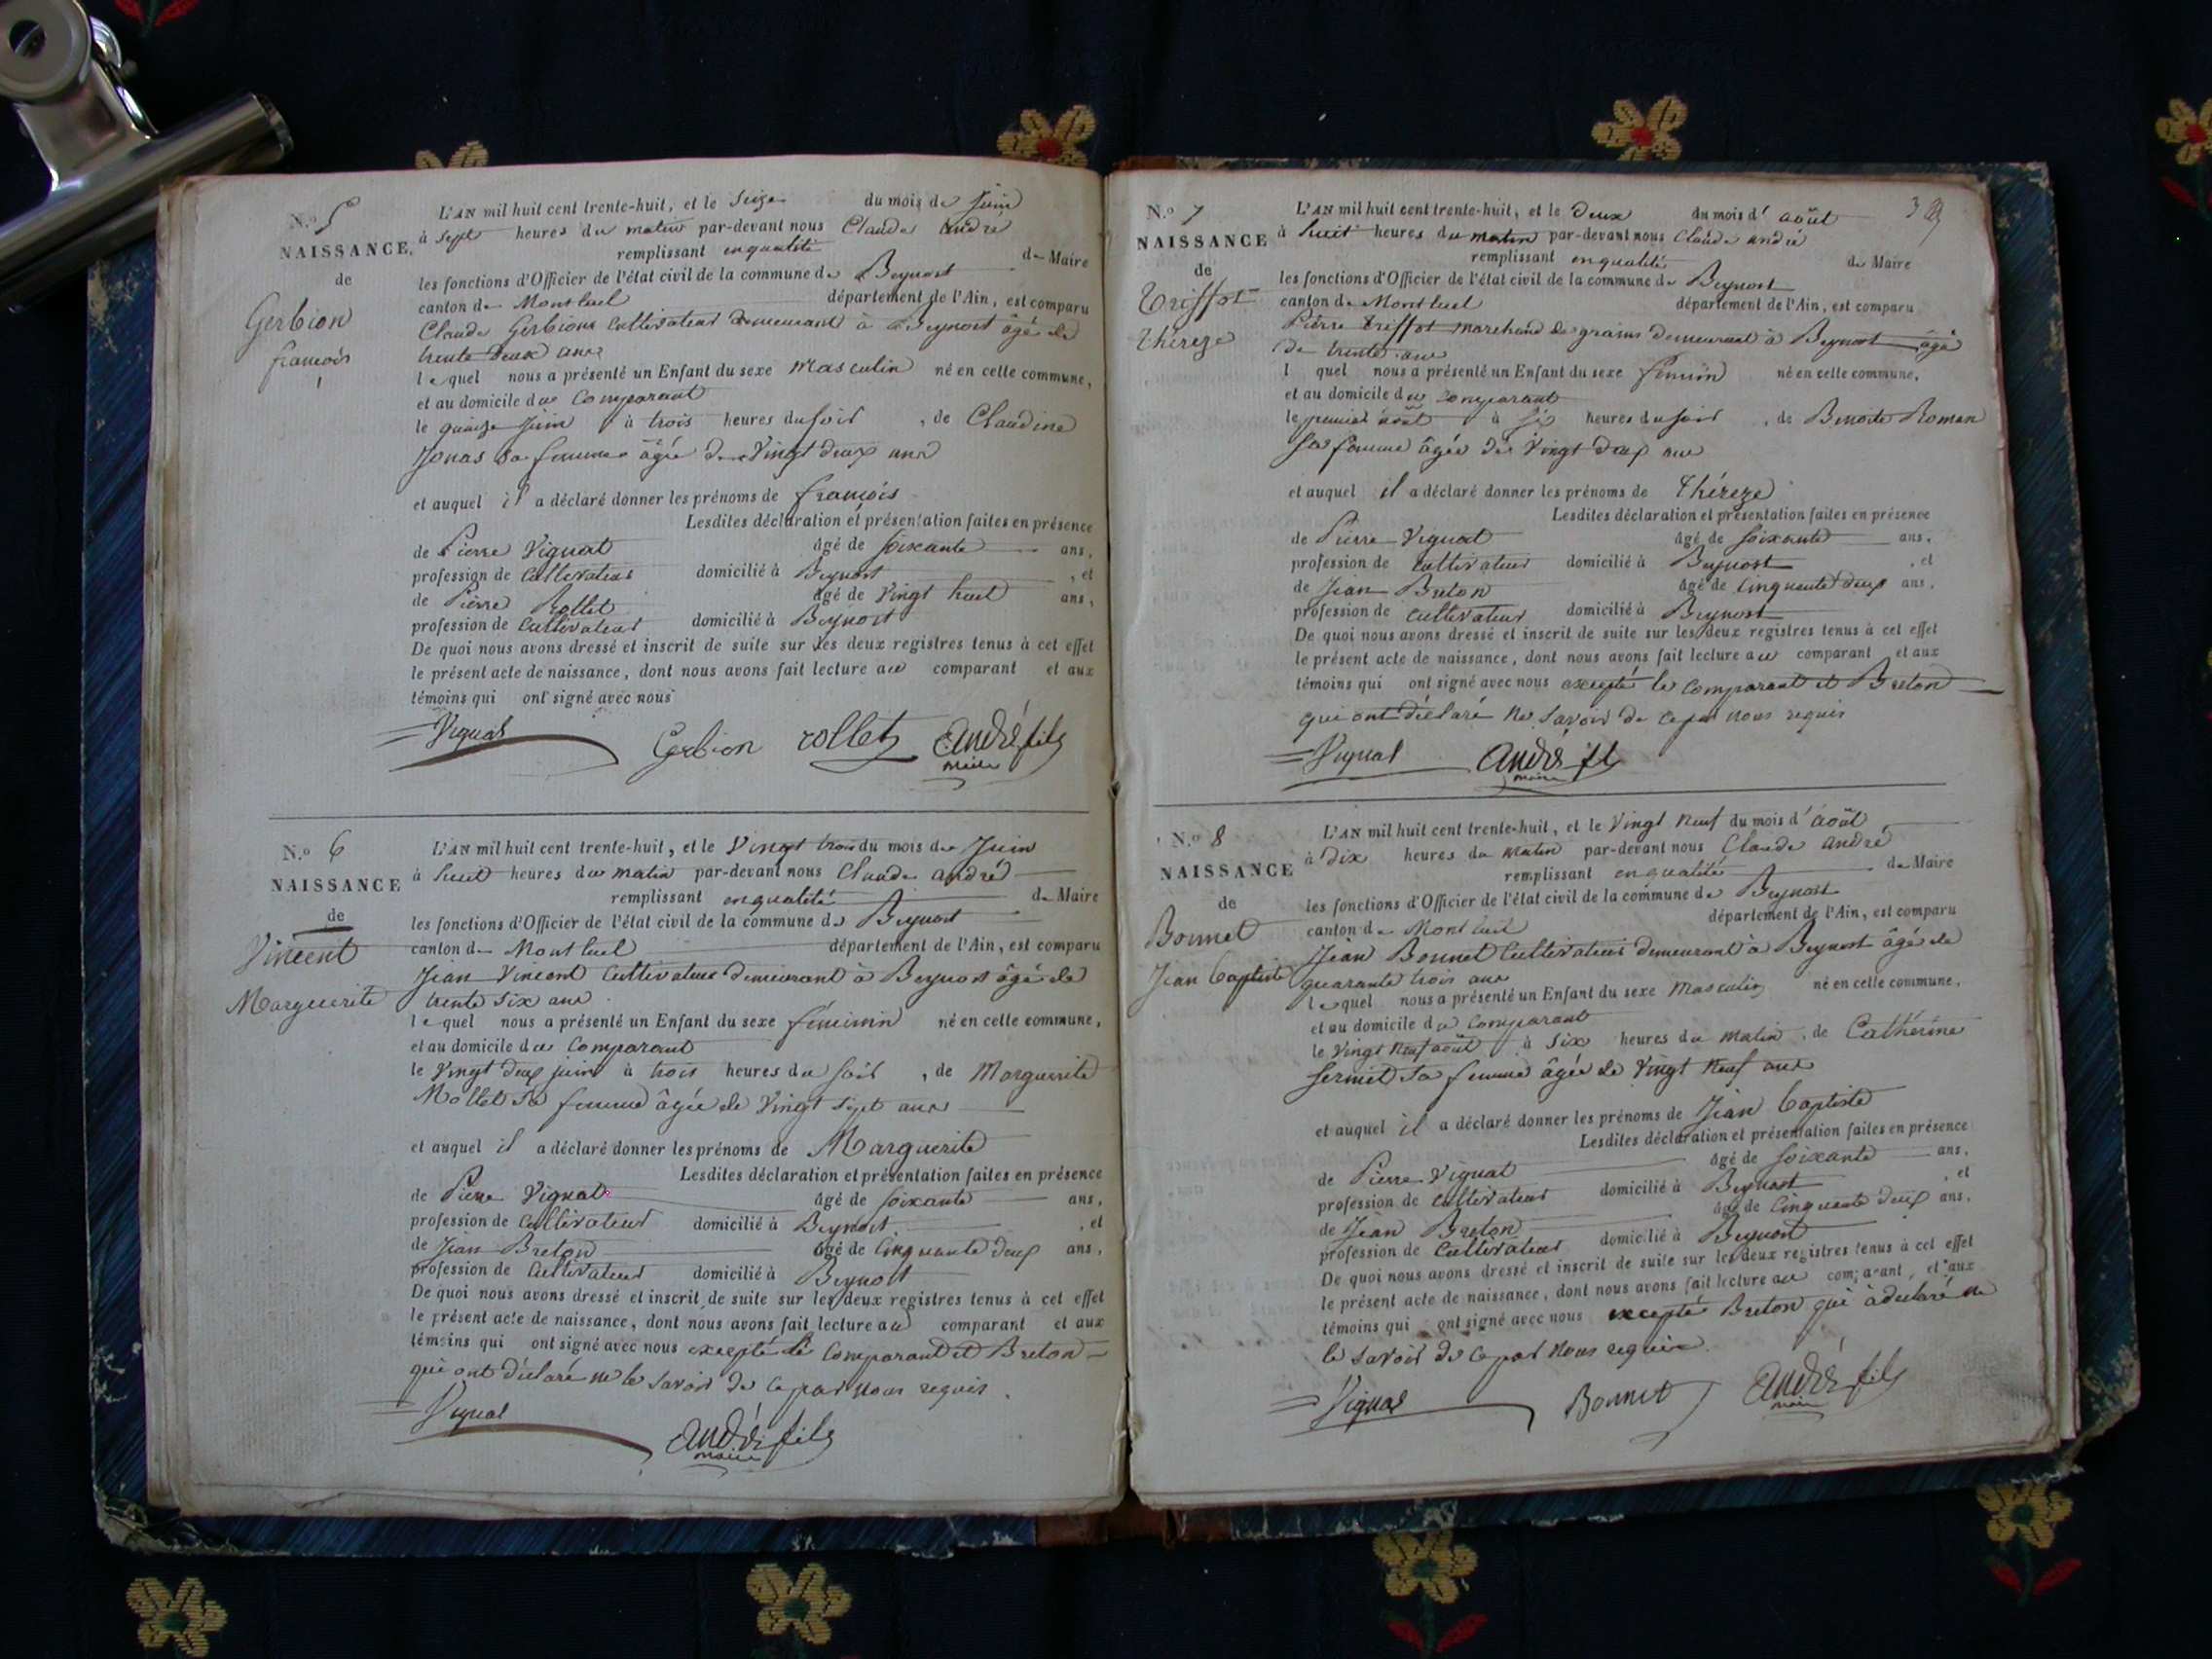 N.º 5
NAISSANCE,
de
Gerbion
françois
L'AN mil huit cent trente-huit, et le Seize du mois de Juin
à Sept heures du matin par-devant nous Claude andré
remplissant en qualité de Maire
les fonctions d'Officier de l'état civil de la commune de Beynost
canton de Montluel département de l'Ain, est comparu
Claude Gerbion Cultivateur demeurant à Beynost âgé de
trente deux ans
lequel nous a présenté un Enfant du sexe masculin né en cette commune,
et au domicile du Comparant
le quinze Juin à trois heures du soir, de Claudine
Jonas Sa femme âgée de Vingt deux ans
et auquel il a déclaré donner les prénoms de françois
Lesdites déclaration et présentation faites en présence
de Pierre Vignat âgé de soixante ans,
profession de Cultivateur domicilié à Beynost, et
de Pierre Rollet âgé de Vingt huit ans,
profession de Cultivateur domicilié à Beynost
De quoi nous avons dressé et inscrit de suite sur les deux registres tenus à cet effet
le présent acte de naissance, dont nous avons fait lecture au comparant et aux
témoins qui ont signé avec nous
Vignat Gerbion rollet André fils
maire
N.º 6
NAISSANCE
de
Vincent
Marguerite
L'AN mil huit cent trente-huit, et le Vingt trois du mois de Juin
à huit heures du matin par-devant nous Claude andré
remplissant en qualité de Maire
les fonctions d'Officier de l'état civil de la commune de Beynost
canton de Montluel département de l'Ain, est comparu
Jean Vincent Cultivateur demeurant à Beynost âgé de
trente six ans
lequel nous a présenté un Enfant du sexe féminin né en cette commune,
et au domicile du Comparant
le Vingt deux juin à trois heures du soir, de Marguerite
Mollet Sa femme âgée de Vingt Sept ans
et auquel il a déclaré donner les prénoms de Marguerite
Lesdites déclaration et présentation faites en présence
de Pierre Vignat âgé de soixante ans,
profession de Cultivateur domicilié à Beynost, et
de Jean Breton âgé de Cinquante deux ans,
profession de Cultivateur domicilié à Beynost
De quoi nous avons dressé et inscrit de suite sur les deux registres tenus à cet effet
le présent acte de naissance, dont nous avons fait lecture au comparant et aux
témoins qui ont signé avec nous excepté le Comparant et Breton
qui ont déclaré ne le Savoir de ce par nous requis.
Vignat André fils
maire
3
N.º 7
NAISSANCE
de
Triffot
Théreze
L'AN mil huit cent trente-huit, et le deux du mois d' août
à huit heures du matin par-devant nous Claude andré
remplissant en qualité de Maire
les fonctions d'Officier de l'état civil de la commune de Beynost
canton de Montluel département de l'Ain, est comparu
Pierre triffot marchand de grains demeurant à Beynost âgé
de trente ans
l quel nous a présenté un Enfant du sexe féminin né en cette commune,
et au domicile du comparant
le premier août à six heures du soir, de Benoite Roman
Sa femme âgée de Vingt deux ans
et auquel il a déclaré donner les prénoms de Théreze
Lesdites déclaration et présentation faites en présence
de Pierre Vignat âgé de soixante ans,
profession de Cultivateur domicilié à Beynost, et
de Jean Breton âgé de Cinquante deux ans,
profession de Cultivateur domicilié à Beynost
De quoi nous avons dressé et inscrit de suite sur les deux registres tenus à cet effet
le présent acte de naissance, dont nous avons fait lecture au comparant et aux
témoins qui ont signé avec nous excepté le Comparant et Breton
qui ont déclaré ne Savoir de ce par nous requis
Vignat André fils
maire
N.º 8
NAISSANCE
de
Bonnet
Jean Baptiste
L'AN mil huit cent trente-huit, et le Vingt neuf du mois d' août
à dix heures du matin par-devant nous Claude andré
remplissant en qualité de Maire
les fonctions d'Officier de l'état civil de la commune de Beynost
canton de Montluel département de l'Ain, est comparu
Jean Bonnet Cultivateur demeurant à Beynost âgé de
quarante trois ans
lequel nous a présenté un Enfant du sexe masculin né en cette commune,
et au domicile du Comparant
le Vingt neuf août à six heures du matin, de Cathérine
fermet Sa femme âgée de Vingt neuf ans
et auquel il a déclaré donner les prénoms de Jean Baptiste
Lesdites déclaration et présentation faites en présence
de Pierre Vignat âgé de soixante ans,
profession de Cultivateur domicilié à Beynost, et
de Jean Breton âgé de Cinquante deux ans,
profession de Cultivateur domicilié à Beynost
De quoi nous avons dressé et inscrit de suite sur les deux registres tenus à cet effet
le présent acte de naissance, dont nous avons fait lecture au comparant, et aux
témoins qui ont signé avec nous excepté Breton qui à déclaré ne
le Savoir de ce par nous requis.
Vignat Bonnet André fils
maire